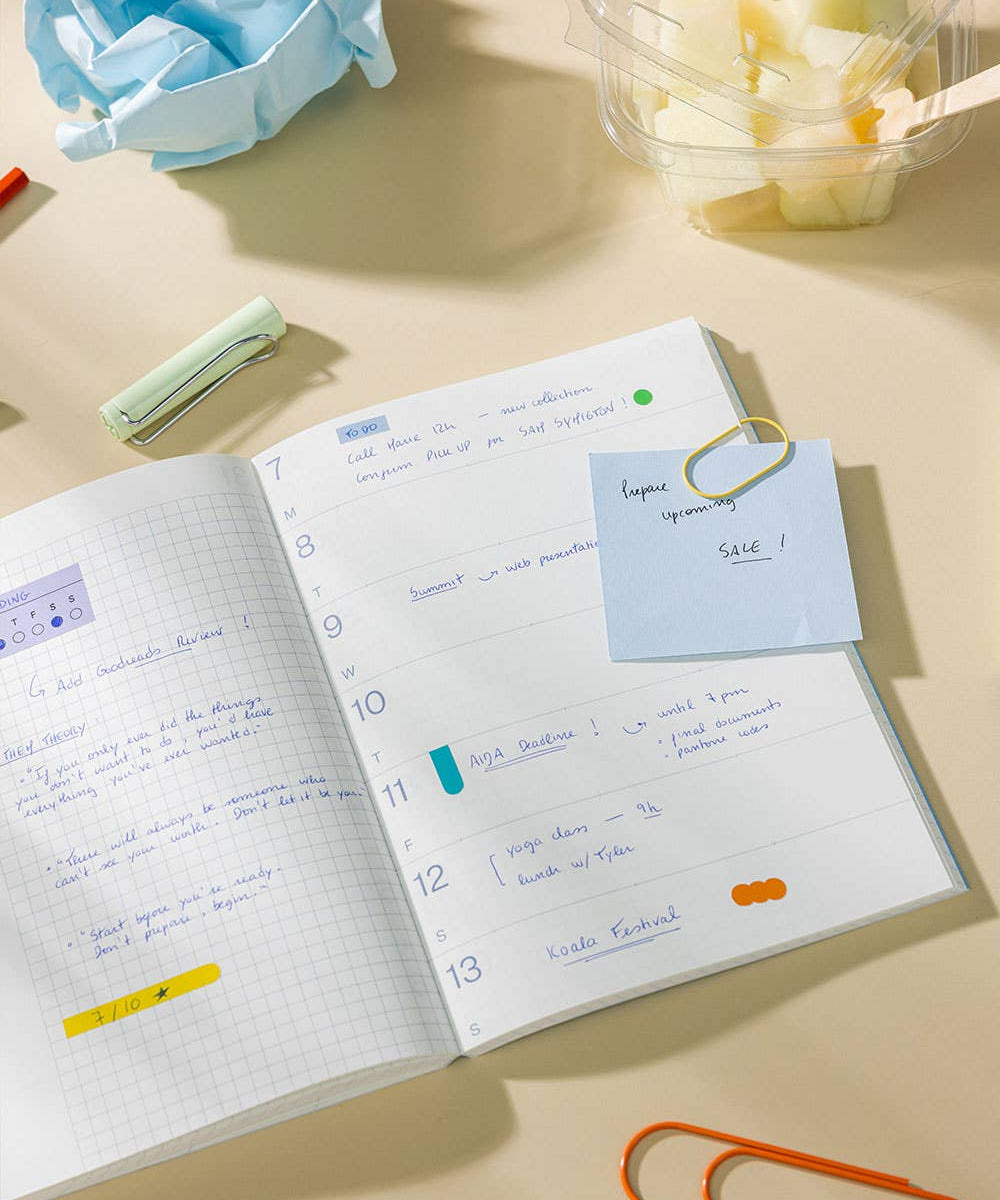 DING
T F S S
Add Goodreads Review !
THEM THEORY:
• "If you only ever did the things
you don't want to do, you'd have
everything you've ever wanted."
• "There will always be someone who
can't see your worth. Don't let it be you."
• "Start before you're ready.
Don't prepare, begin."
7/10 ★
7
TO DO
Call Marie 12h — new collection
Confirm PICK UP for SAM SYMIGTON !
M
8
T
9
Summit web presentatio
W
10
T
11
AIDA Deadline ! until 7 pm
• final documents
• pantone codes
F
12
yoga class — 9h
lunch w/ Tyler
S
13
Koala Festival
S
Prepare
upcoming
SALE !